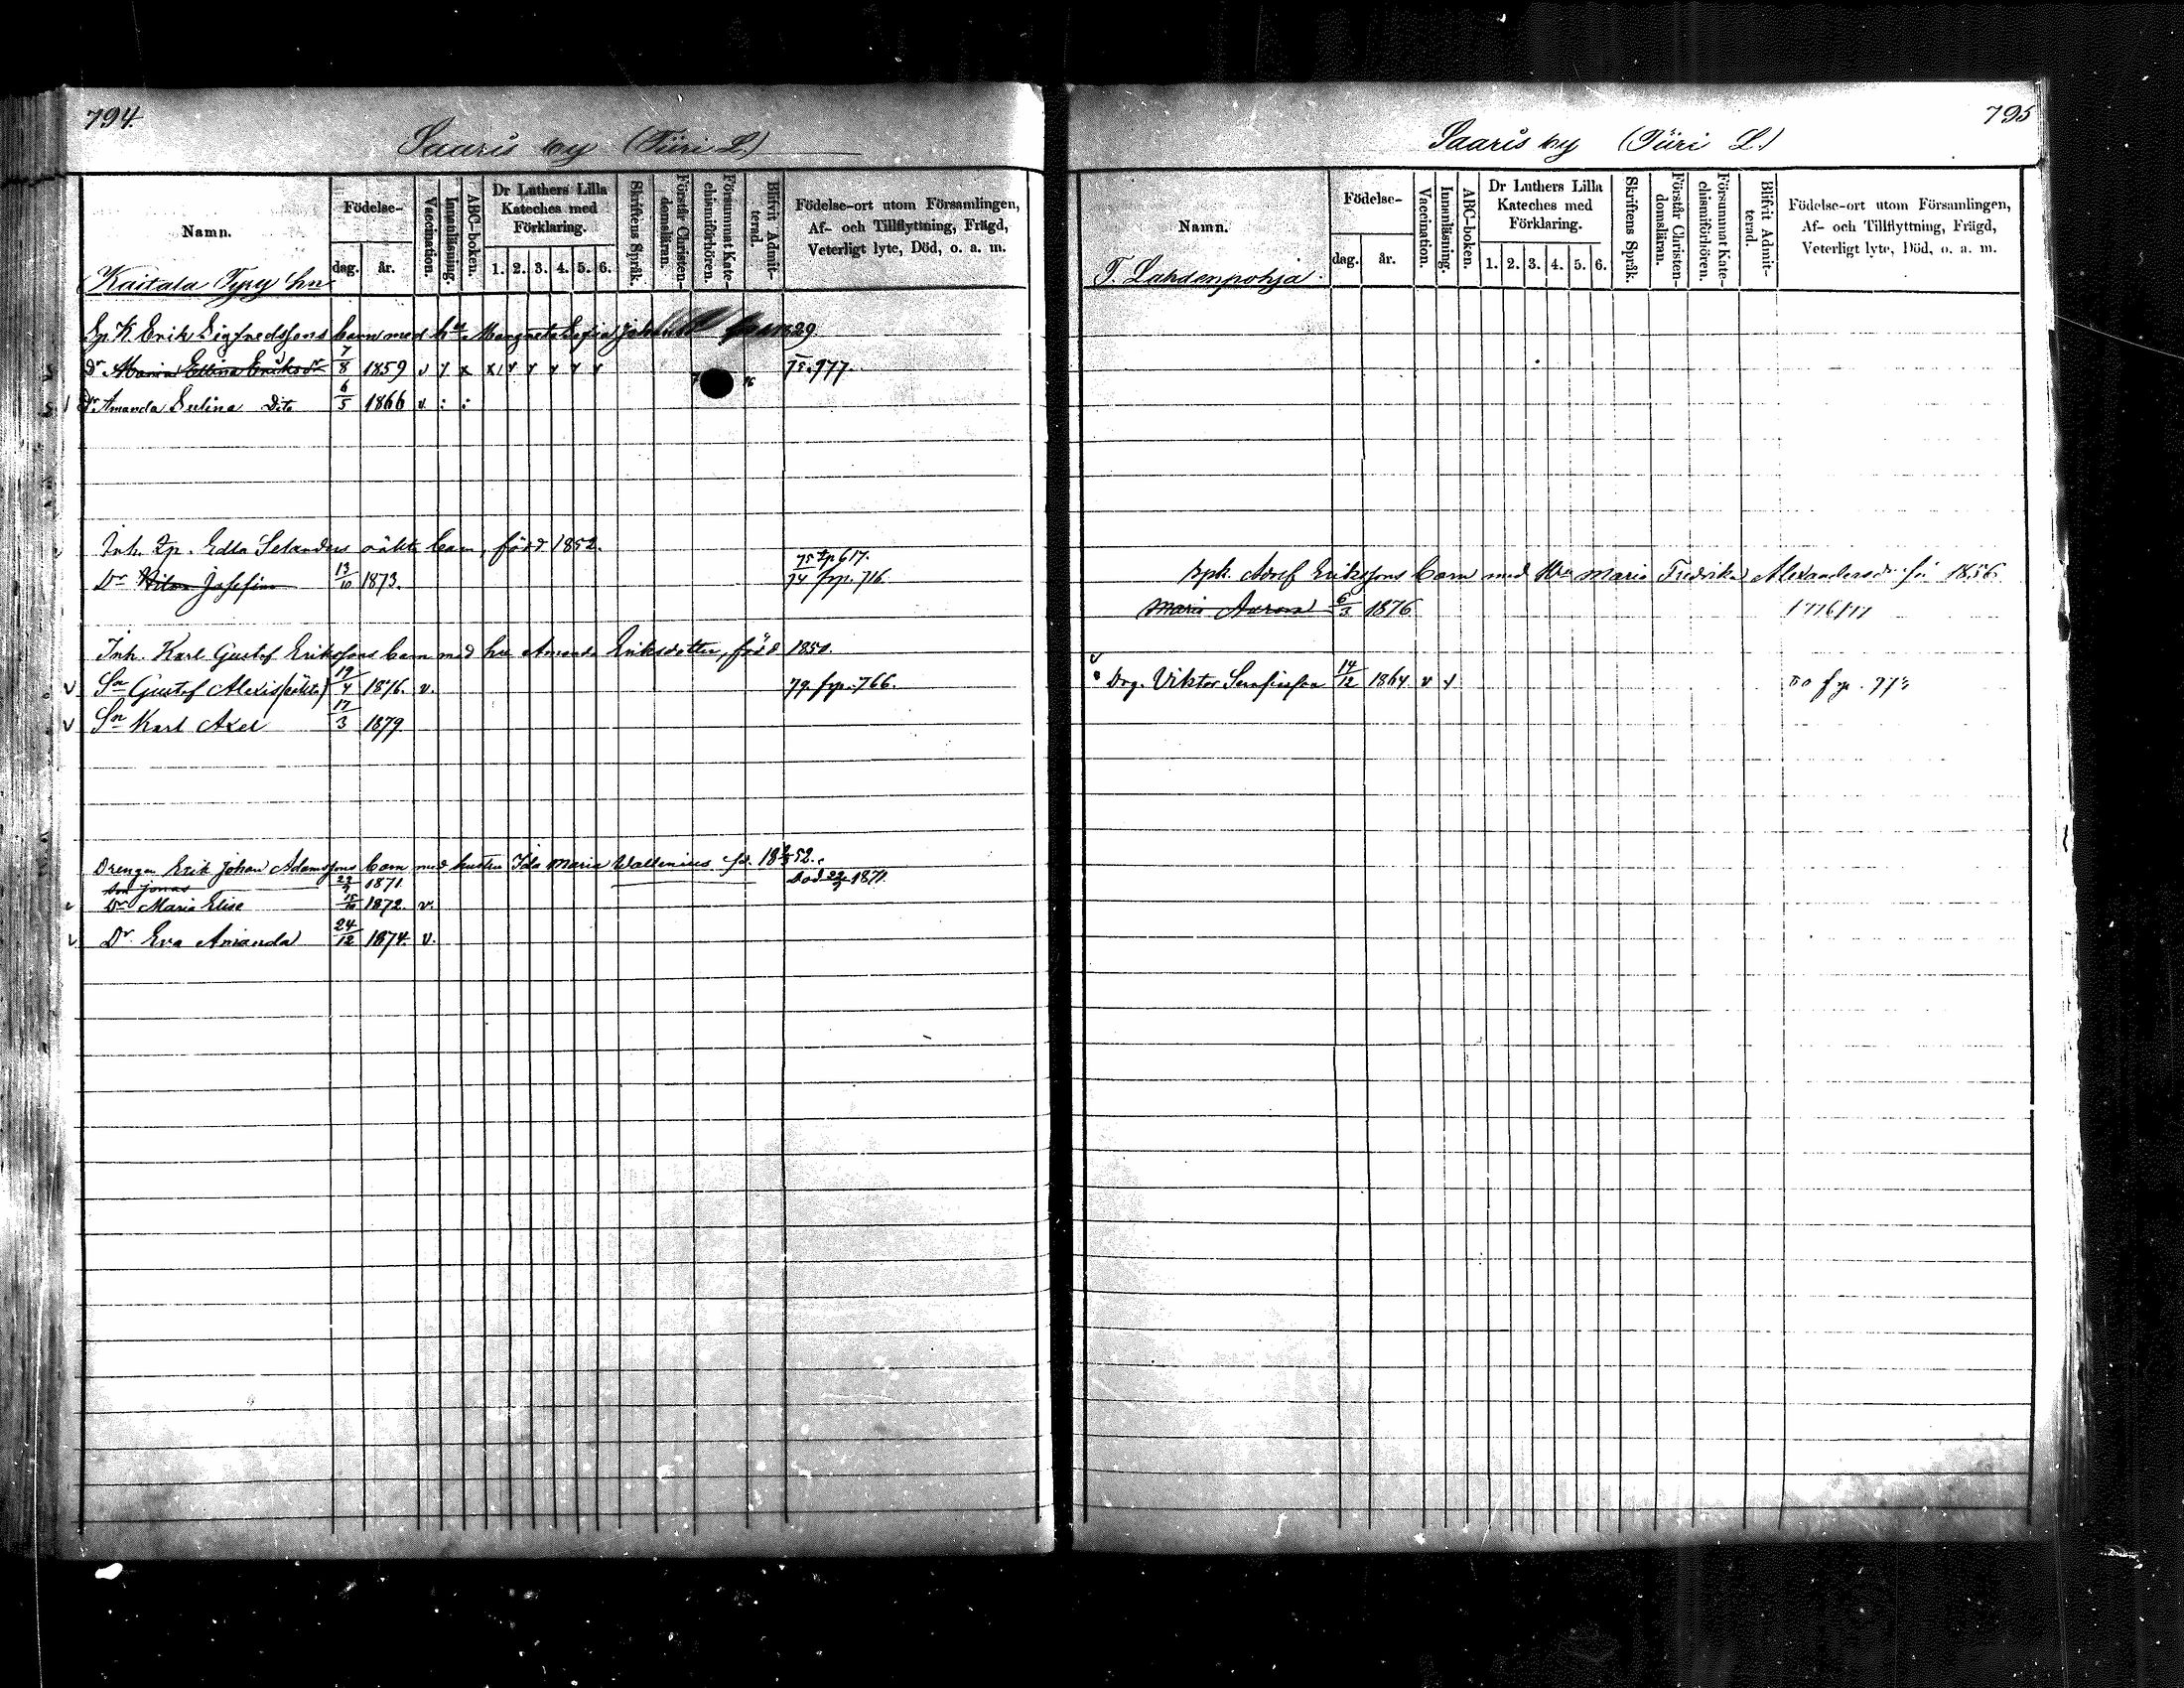 794.
Saaris by (Türi L.)
Namn.
Födelse-
dag.
år.
Vaccination.
Innanläsning.
ABC-boken.
Dr Luthers Lilla
Kateches med
Förklaring.
1. 2. 3. 4. 5. 6.
Skriftens Språk.
Förstår Christen-
domsläran.
Försummat Kate-
chismiförhören.
Blifvit Admit-
terad.
Födelse-ort utom Församlingen,
Af- och Tillflyttning, Frägd,
Veterligt lyte, Död, o. a. m.
Kaitala Tyry hn
K Erik Sigfredssons barn med hu Margreta Sofia 1829.
Dr Maria Eriksdr 7/8 1859 v 75. 977.
Dr Amanda Dito 6/5 1866 v : :
Inh. Edla Selanders oäkta barn, född 1852.
75 617.
Dr Josefina 13/10 1873. 74 frp. 716.
Inh. Karl Gustof Erikssons barn med hu Amanda Eriksdotter, född 1850.
v Sn Gustof Alexis (oäkta) 19/4 1876. v. 79. frp. 766.
v Sn Karl Axel 17/3 1879
Drengen Erik Johan Adamssons barn med hustru Ida Maria Wallenius fd. 52.
Son Jonas 1871. Död 1871.
v Dr Maria Elise 1872 v.
v Dr Eva Amanda 24/12 1874. v.
795
Saaris by (Türi L.)
Namn.
Födelse-
dag.
år.
Vaccination.
Innanläsning.
ABC-boken.
Dr Luthers Lilla
Kateches med
Förklaring.
1. 2. 3. 4. 5. 6.
Skriftens Språk.
Förstår Christen-
domsläran.
Försummat Kate-
chismiförhören.
Blifvit Admit-
terad.
Födelse-ort utom Församlingen,
Af- och Tillflyttning, Frägd,
Veterligt lyte, Död, o. a. m.
T. Lahdenpohja
Adolf Erikssons barn med Hru Maria Fredrika Alexandersdr 1856
Maria Aurora 6/3 1876
Drg. Viktor 14/12 1864 v